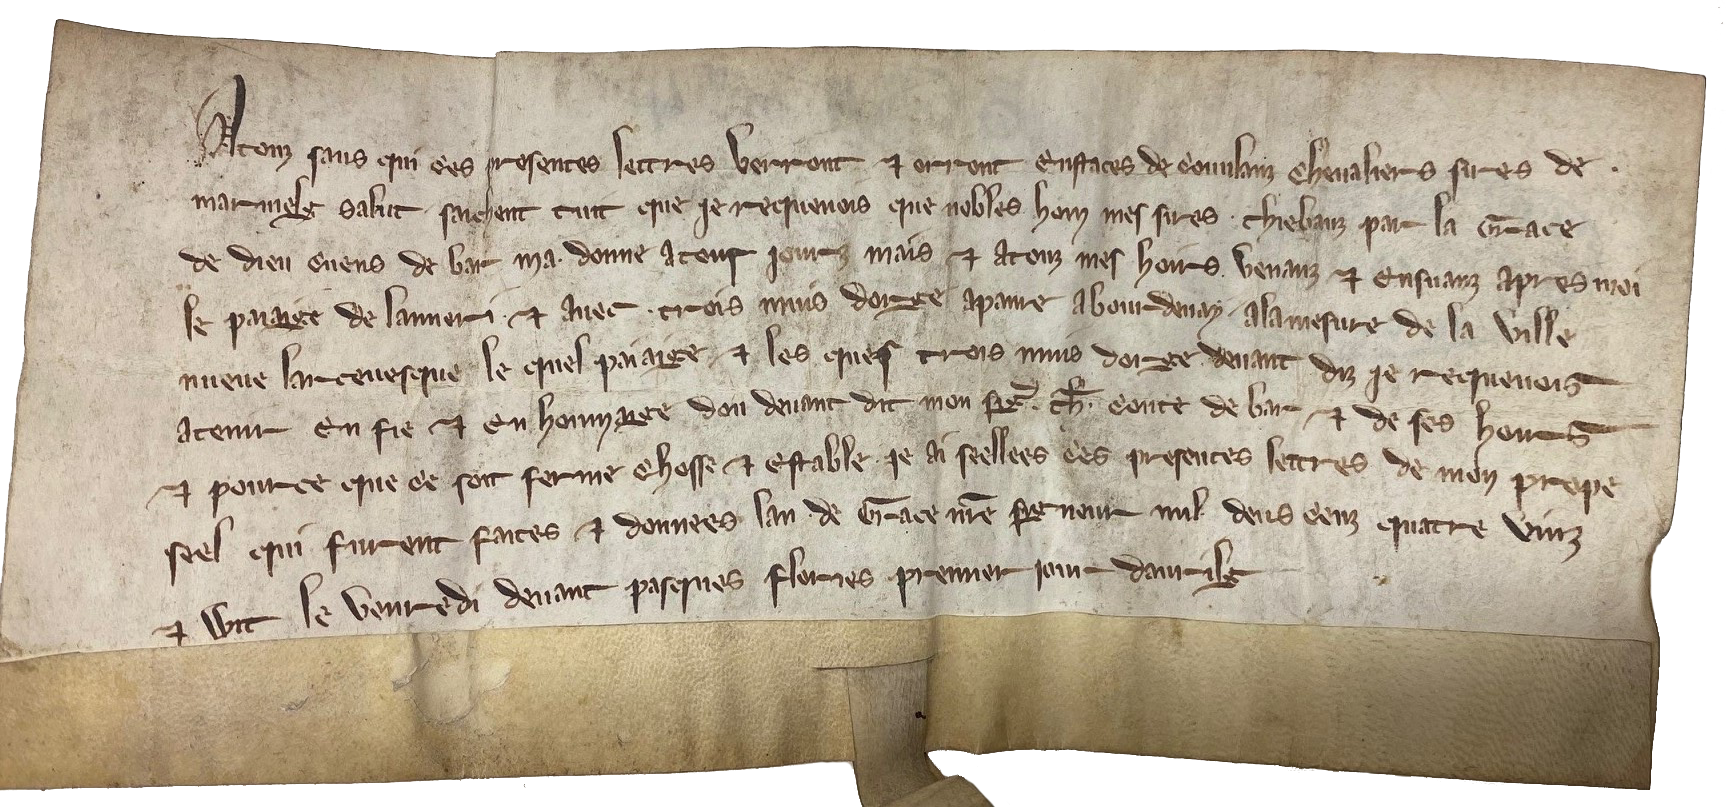 Atouz saus qui ces presentes lettres verront ⁊ orront Eustaces de conflanz chevaliers sires de
marueig salut saichent tuit que je requenois que nobles hom mes sires . thiebauz par la Grace
de dieu cuens de bar ma donne a touz jourz mais ⁊ a touz mes hoirs venanz ⁊ ensuianz apres moi
le paiaige de lanneri . ⁊ avec . trois muis dorge a panre a bourdenay . a la mesure de la ville
nueve larcevesque le quel paiaige ⁊ les ques trois muis dorge devant diz je requenois
a tenir en fie ⁊ en hommaige dou devant dit mon sgr . th . conte de bar ⁊ de ses hoirs
⁊ pource que ce soit ferme chosse ⁊ estable je ai seellees ces presentes lettres de mon prope
seel qui furent faites ⁊ donnees lan de Grace nre segneur mil deus cenz quatre vinz
⁊ wit le venredi devant pasques flories premier jour davrilg